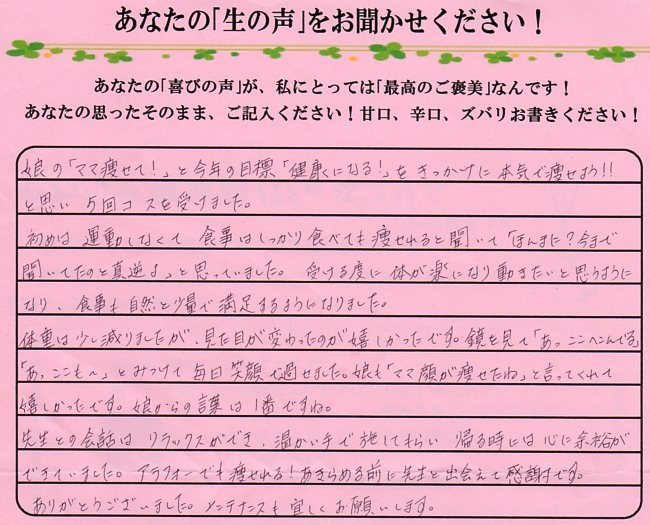 あなたの「生の声」をお聞かせください！
あなたの「喜びの声」が、私にとっては「最高のご褒美」なんです！
あなたの思ったそのまま、ご記入ください！甘口、辛口、ズバリお書きください！
娘の「ママ痩せて！」と今年の目標「健康になる！」をきっかけに本気で痩せよう!!
と思い 5回コースを受けました。
初めは 運動しなくて 食事はしっかり食べても痩せれると聞いて「ほんまに？今まで
聞いてたのと真逆よ」と思っていました。 受ける度に 体が楽になり動きたいと思うように
なり、食事も自然と少量で満足するようになりました。
体重は少し減りましたが、見た目が変わったのが嬉しかったです。鏡を見て「あっ ここへこんでる」
「あっ、ここも～」とみつけて毎日笑顔で過せました。娘も「ママ顔が痩せたね」と言ってくれて
嬉しかったです。娘からの言葉は1番ですね。
先生との会話は リラックスができ、温かい手で施してもらい 帰る時には心に余裕が
できていました。アラフォーでも痩せれる！あきらめる前に先生と出会えて感謝です。
ありがとうございました。メンテナンスも宜しくお願いします。